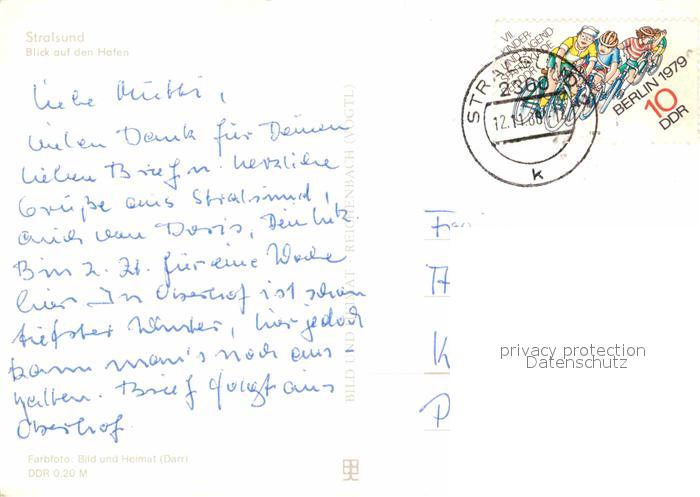 Stralsund
Blick auf den Hafen
Liebe Mutti,
vielen Dank für Deinen
lieben Brief u. herzliche
Grüße aus Stralsund,
auch von Doris, Dein Lutz.
Bin z. Zt. für eine Woche
hier. In Oberhof ist schon
tiefster Winter, hier jedoch
kann man's noch aus-
halten. Brief folgt aus
Oberhof.
Farbfoto: Bild und Heimat (Darr)
DDR 0,20 M
BILD UND HEIMAT REICHENBACH (VOGTL)
VII.
KINDER-
BERLIN 1979
10
DDR
STRALSUND
k
F
H
K
P
privacy protection
Datenschutz